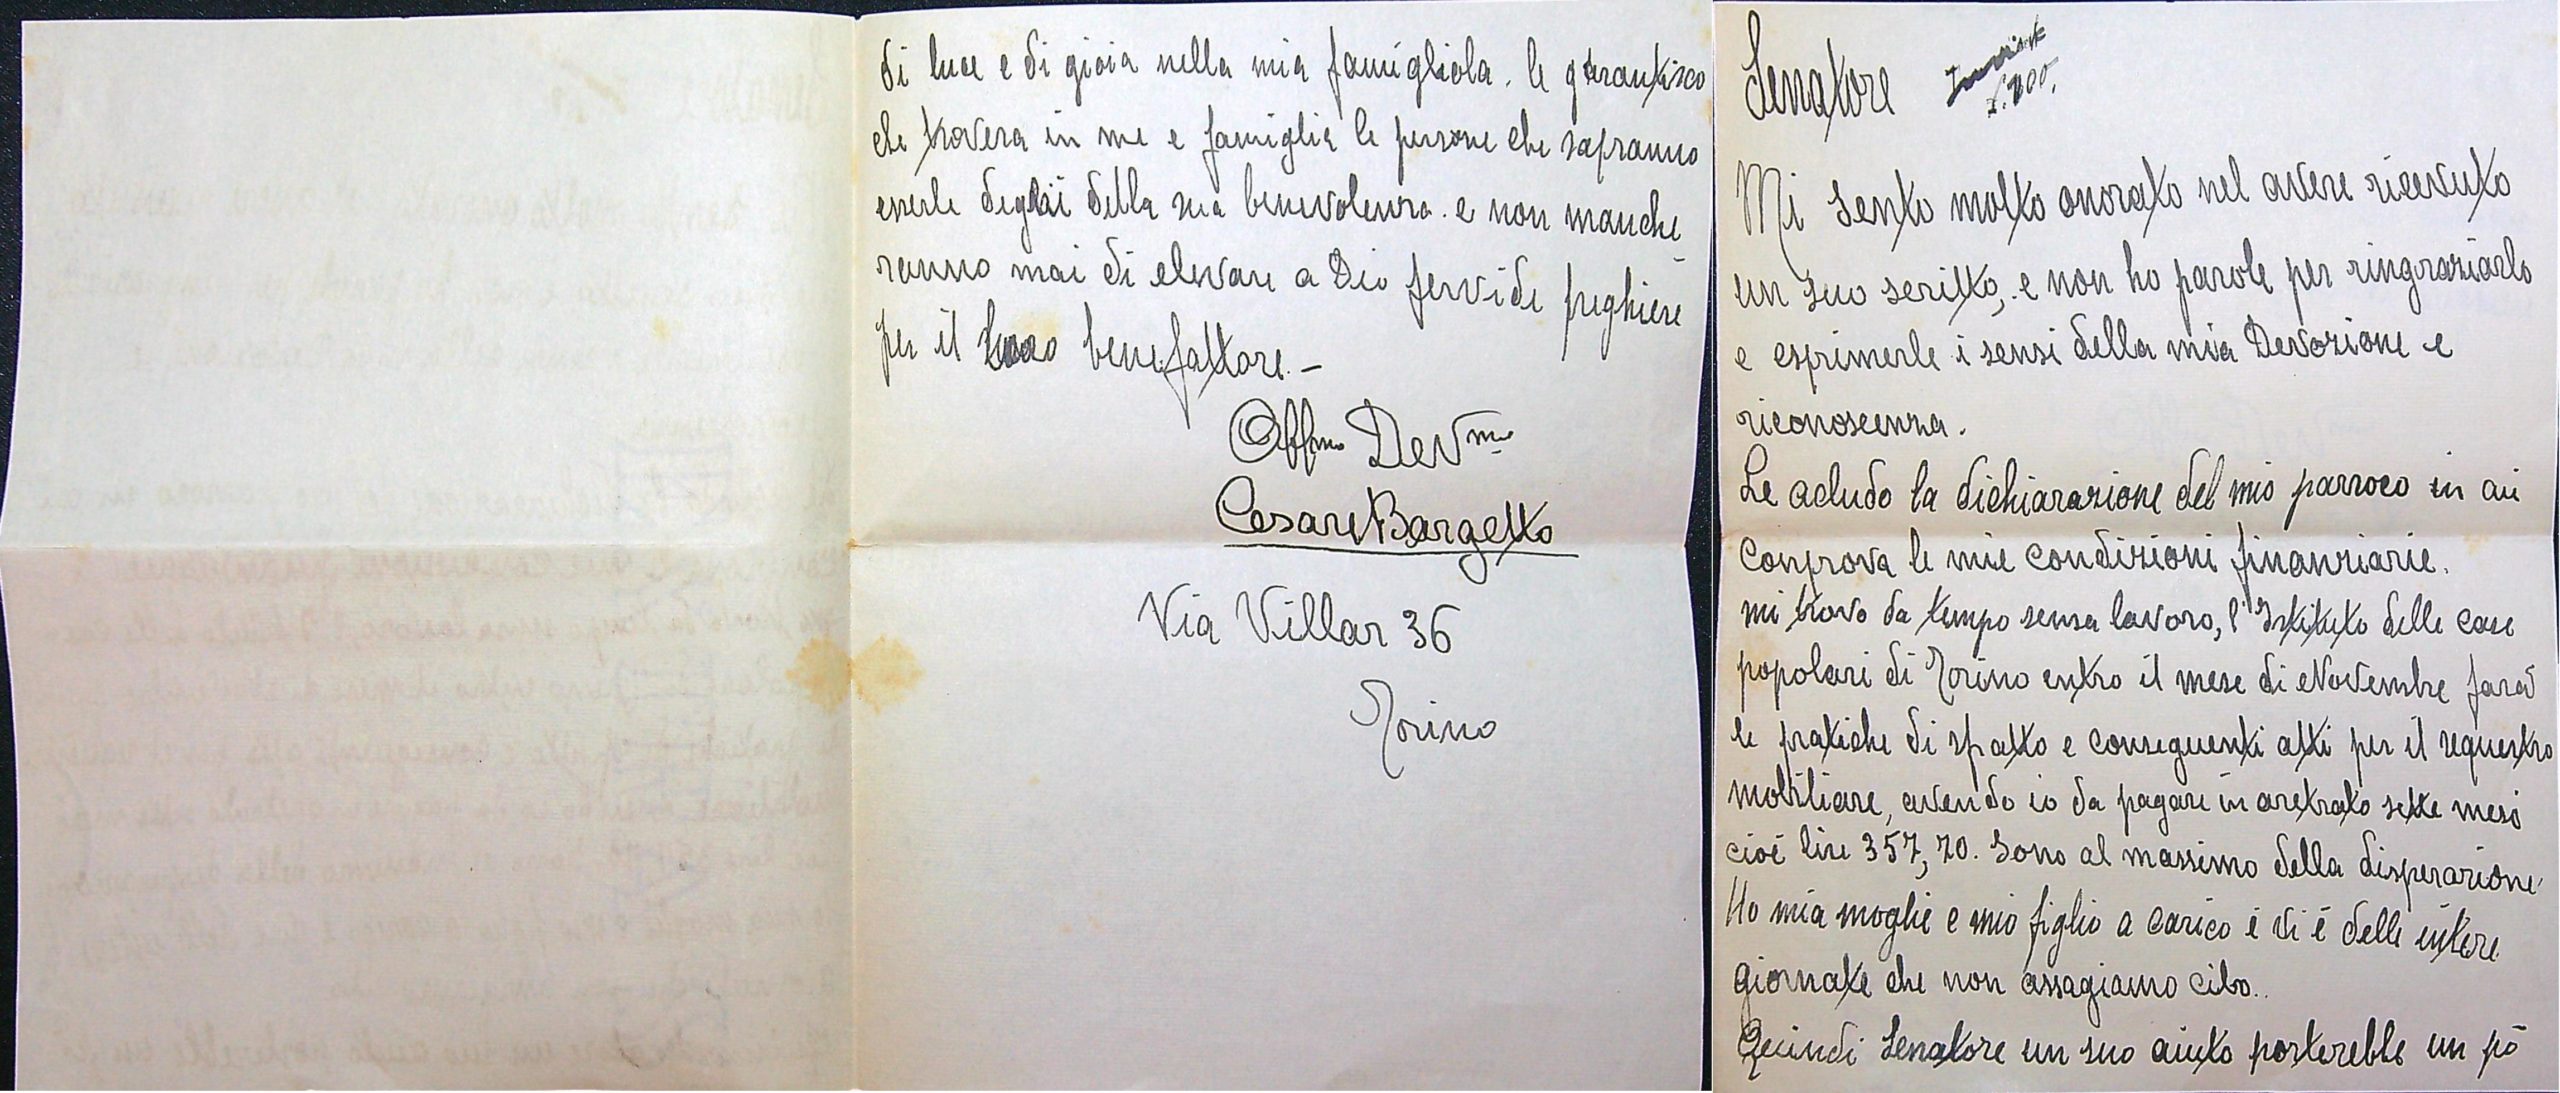 Senatore
£. 200,
Mi sento molto onorato nel avere ricevuto
un suo scritto, e non ho parole per ringraziarlo
e esprimerle i sensi della mia Devozione e
riconoscenza.
Le acludo la dichiarazione del mio parroco in cui
comprova le mie condizioni finanziarie.
mi trovo da tempo senza lavoro, l'Istituto delle case
popolari di Torino entro il mese di Novembre farà
le pratiche di sfratto e conseguenti atti per il sequestro
mobiliare, avendo io da pagare in aretrato sette mesi
cioé lire 357,70. Sono al massimo della disperazione
Ho mia moglie e mio figlio a carico é vi é delle intere
giornate che non assagiamo cibo..
Quindi Senatore un suo aiuto porterebbe un pó
di luce e di gioia nella mia famigliola. le garantisco
che trovera in me e famiglia le persone che sapranno
esserle degni della sua benevolenza. e non manche
ranno mai di elevare a Dio fervide preghiere
per il loro benefattore.-
Affmo Devmo
Cesare Bargetto
Via Villar 36
Torino